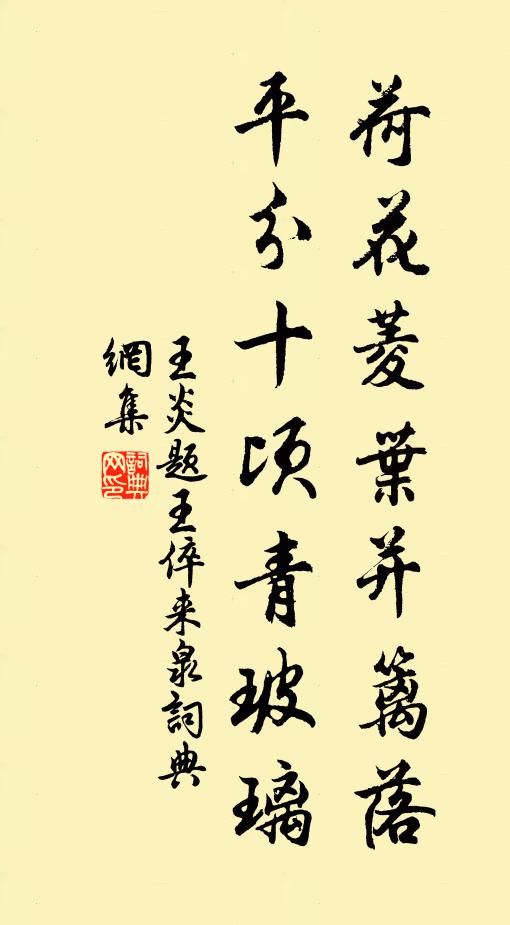 荷花菱葉并籬落
平分十頃青玻璃
王炎题王倅来泉詞典
網集
詞典网印